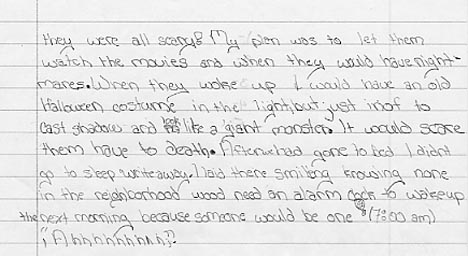 they were all scarys My plan was to let them
watch the movies and when they would have night-
mares. When they woke up I would have an old
Halloween costume in the light, but just inof to
cast shadow and look like a giant monster. It would scare
them have to death. After we had gone to bed I didnt
go to sleep write away. I laid there smileng knowing none
in the neighborhood wood need an alarm clock to wakeup
the next morning because someone would be one (7:00 am)
"Ahhhhhhhhh"?